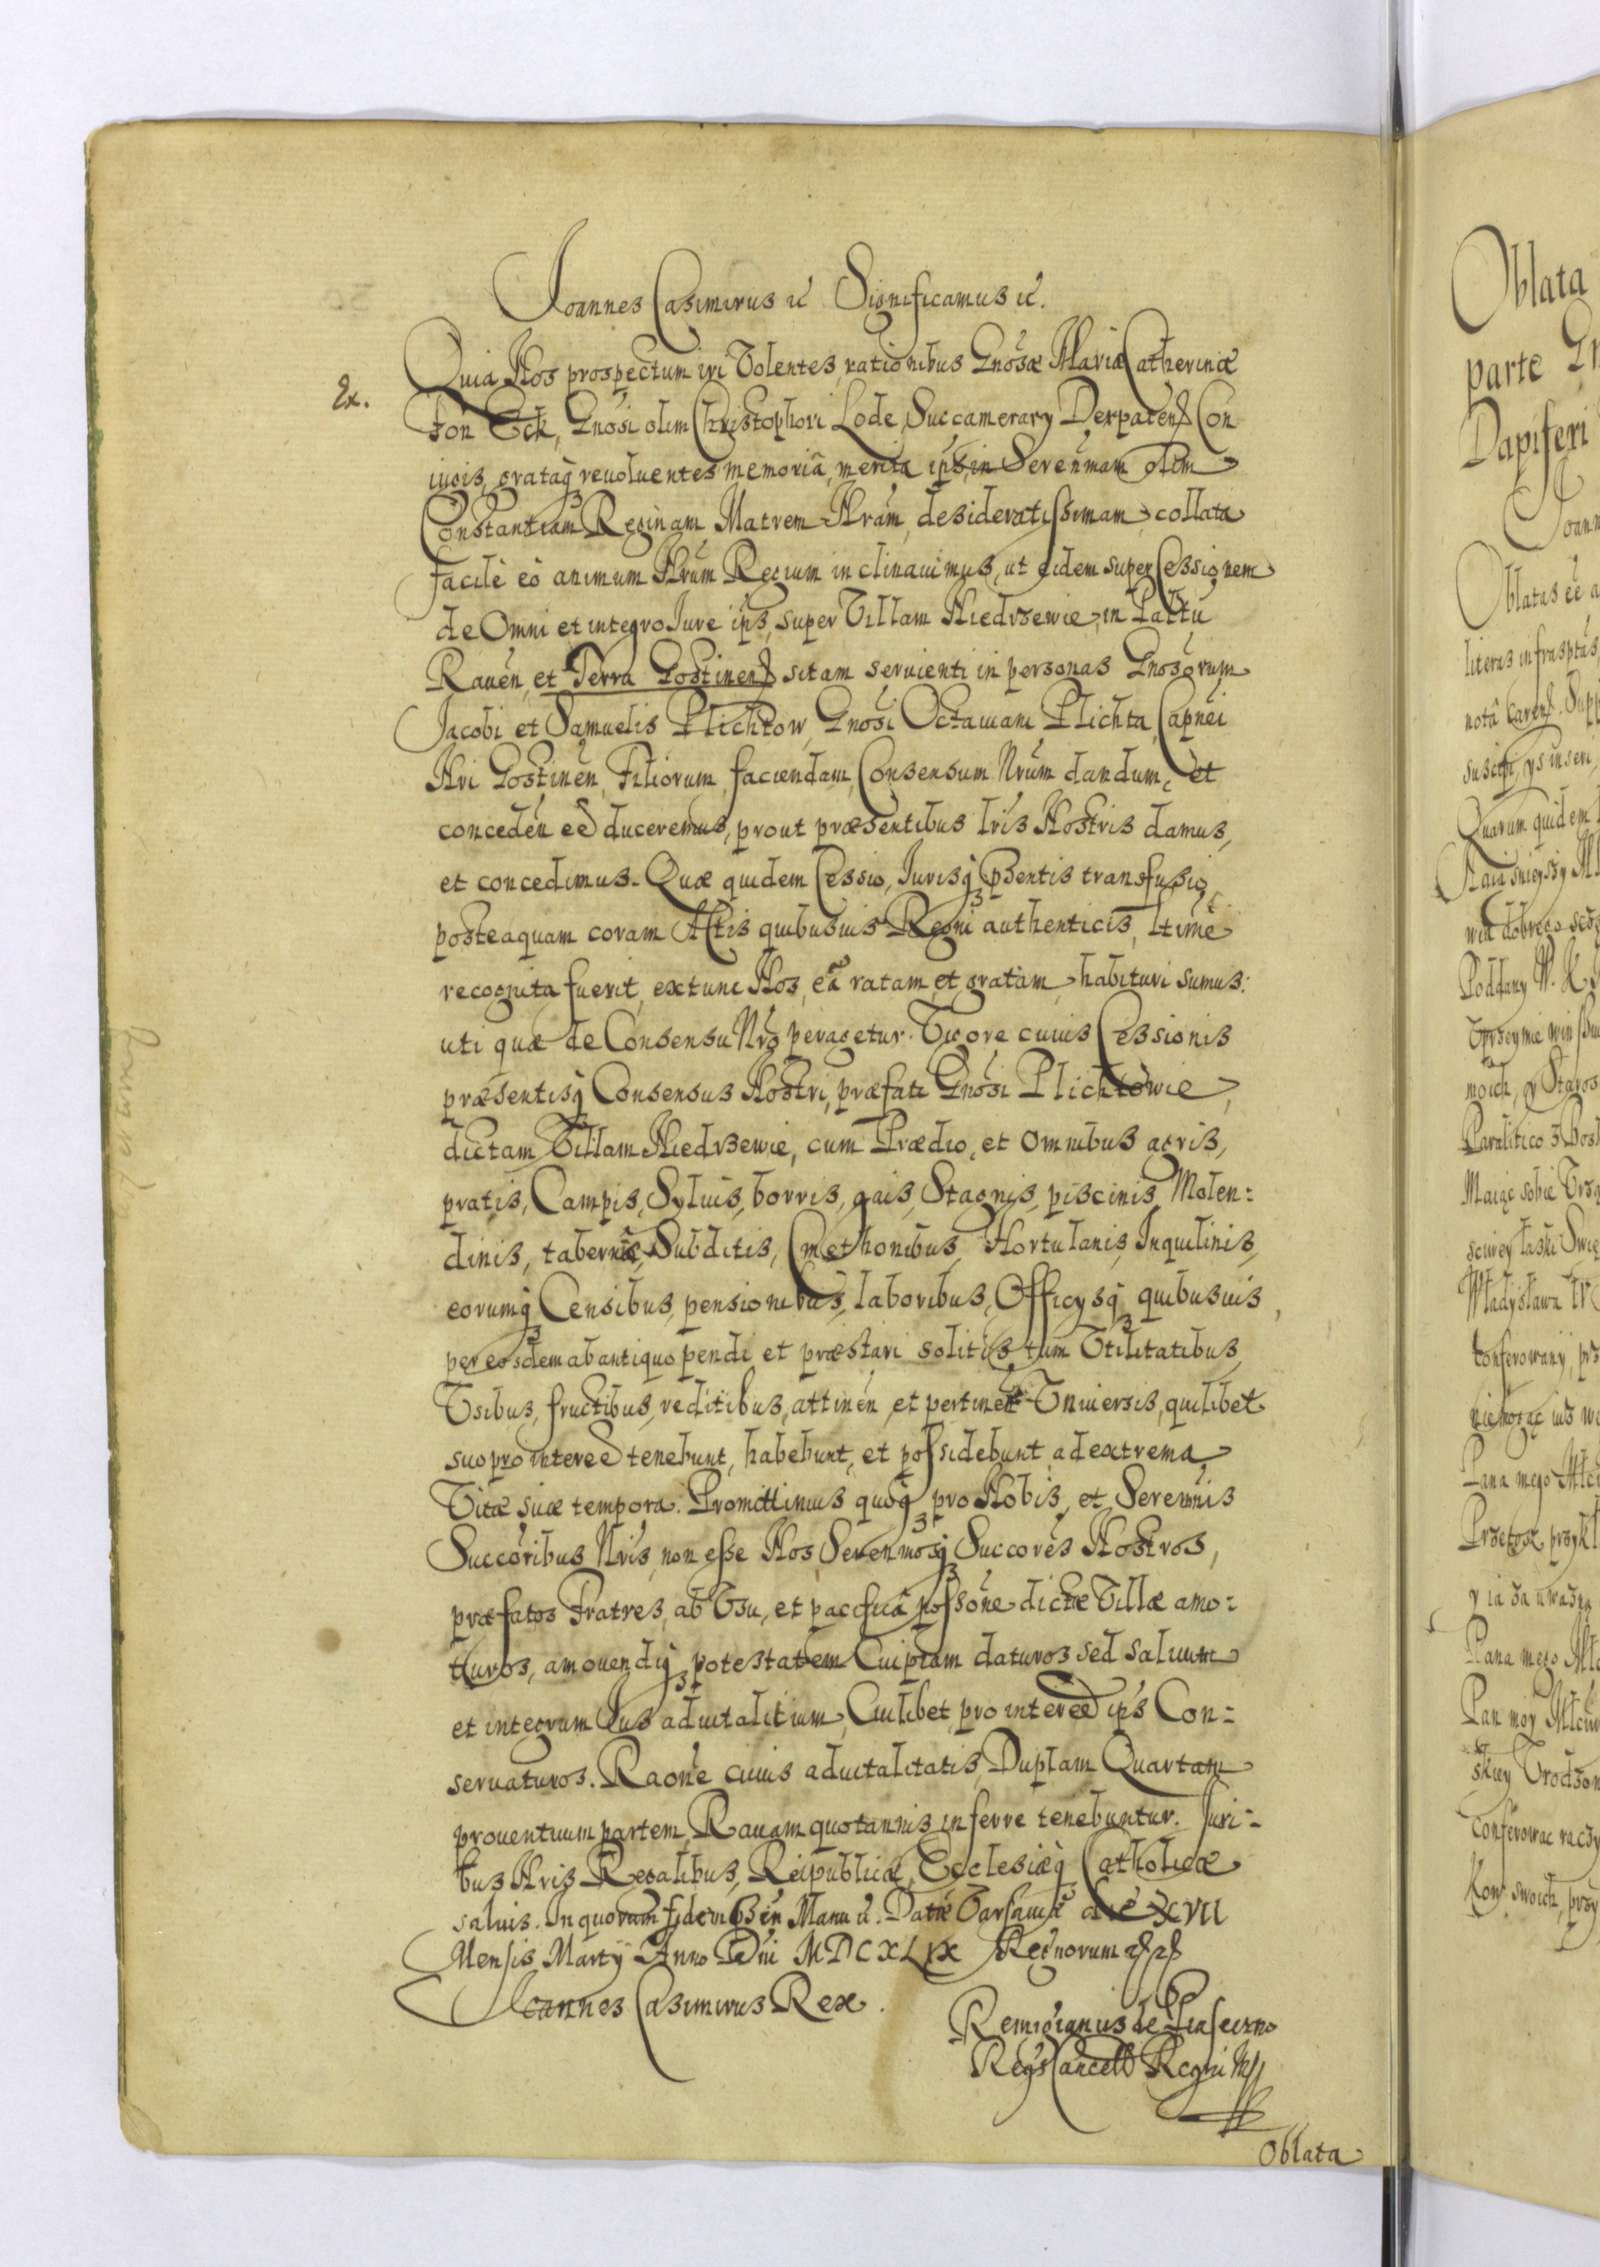 Joannes Casimirus etc Significamus etc.
Quia Nos prospectum iri Volentes, rationibus Gnosæ Mariæ Catherinæ
Ex.
Fon Eck, Gnosi olim Christophori Lode, Succamerary Derpaten Con
iugis, grataq revoluentes memoriâ, merita ips in Serenmam olim
Constantiam Reginam, Matrem Nram, desideratissimam, collata
facilè eò animum Nrum Regium inclinauimus, ut eidem super Cessionem
de Omni et integro Iure ips, super Villam Niedrzewie, in Pallu
Rauen, et Terra Gostinen sitam seruienti in personas Gnosorum
Jacobi et Samuelis Plichtow, Gnosi Octawiani Plichta, Capnei
Nri Gostinen, Filiorum, faciendam, Consensum Nrum dandum, et
conceden eè duceremus, prout præsentibus lris Nostris damus,
et concedimus. Quæ quidem Cessio, Jurisq psentis transfusio,
posteaquam coram Actis quibusuis Regni authenticis, ltime
recognita fuerit, extunc Nos, eâ ratam, et gratam, habituri sumus:
uti quæ de Consensu Nro peragetur. Vigore cuius Cessionis
præsentisq Consensus Nostri, præfati Gnosi Plichtowie,
dictam Villam Niedrzewie, cum Prædio, et omnibus agris,
pratis, Campis, Syluis, borris, gais, Stagnis, piscinis, Molen=
dinis, tabernis, Subditis, Cmethonibus, Hortulanis, Inquilinis,
eorumq Censibus, pensionibus, laboribus, Officysq quibusuis,
per eosdem ab antiquo pendi et præstari solitis, tum Vtilitatibus,
Vsibus, fructibus, reditibus, attinen, et pertinen Vniuersis, quilibet
suo pro intereè tenebunt, habebunt, et possidebunt, ad extrema
Vitæ suæ tempora. Promittimus quoq pro Nobis, et Serenmis
Succoribus Nris, non esse Nos, Serenmosq Succores Nostros,
præfatos Fratres, ab Vsu, et pacificâ possone dictæ Villæ amo=
turos, amouendiq potestatem Cuipiam daturos, sed saluum
et integrum Jus aduitalitium, Cuilibet, pro intereè ips Con=
seruaturos. Raone cuius aduitalitatis, Duplam Quartam
prouentuum partem, Rauam quotannis inferre tenebuntur. Juri=
bus Nris Regalibus, Reipublicæ, Ecclesiæq Catholicæ
saluis. In quorum fidem psen Manu etc. Datæ Varsauiæ die XVII
Mensis Marty Anno Dni MDCXLIX Regnorum etc etc
Joannes Casimirus Rex.
Remigianus de Piaseczno
Regs Cancell Regni
Oblata
Oblata
parte Gn
Dapiferi
Joann
Oblatas eè a
literas infrasptas
notâ Caren. Supp
suscipi, ys inseri,
Quarum quidem
Poddany W. K
moich, y Staros
Paralitico z Bosk
Maiąc sobie
Władysława
Conferowany prz
Pana mego Młci
Pana mego Mło
Pan moy Młciw
Conferowac raczy